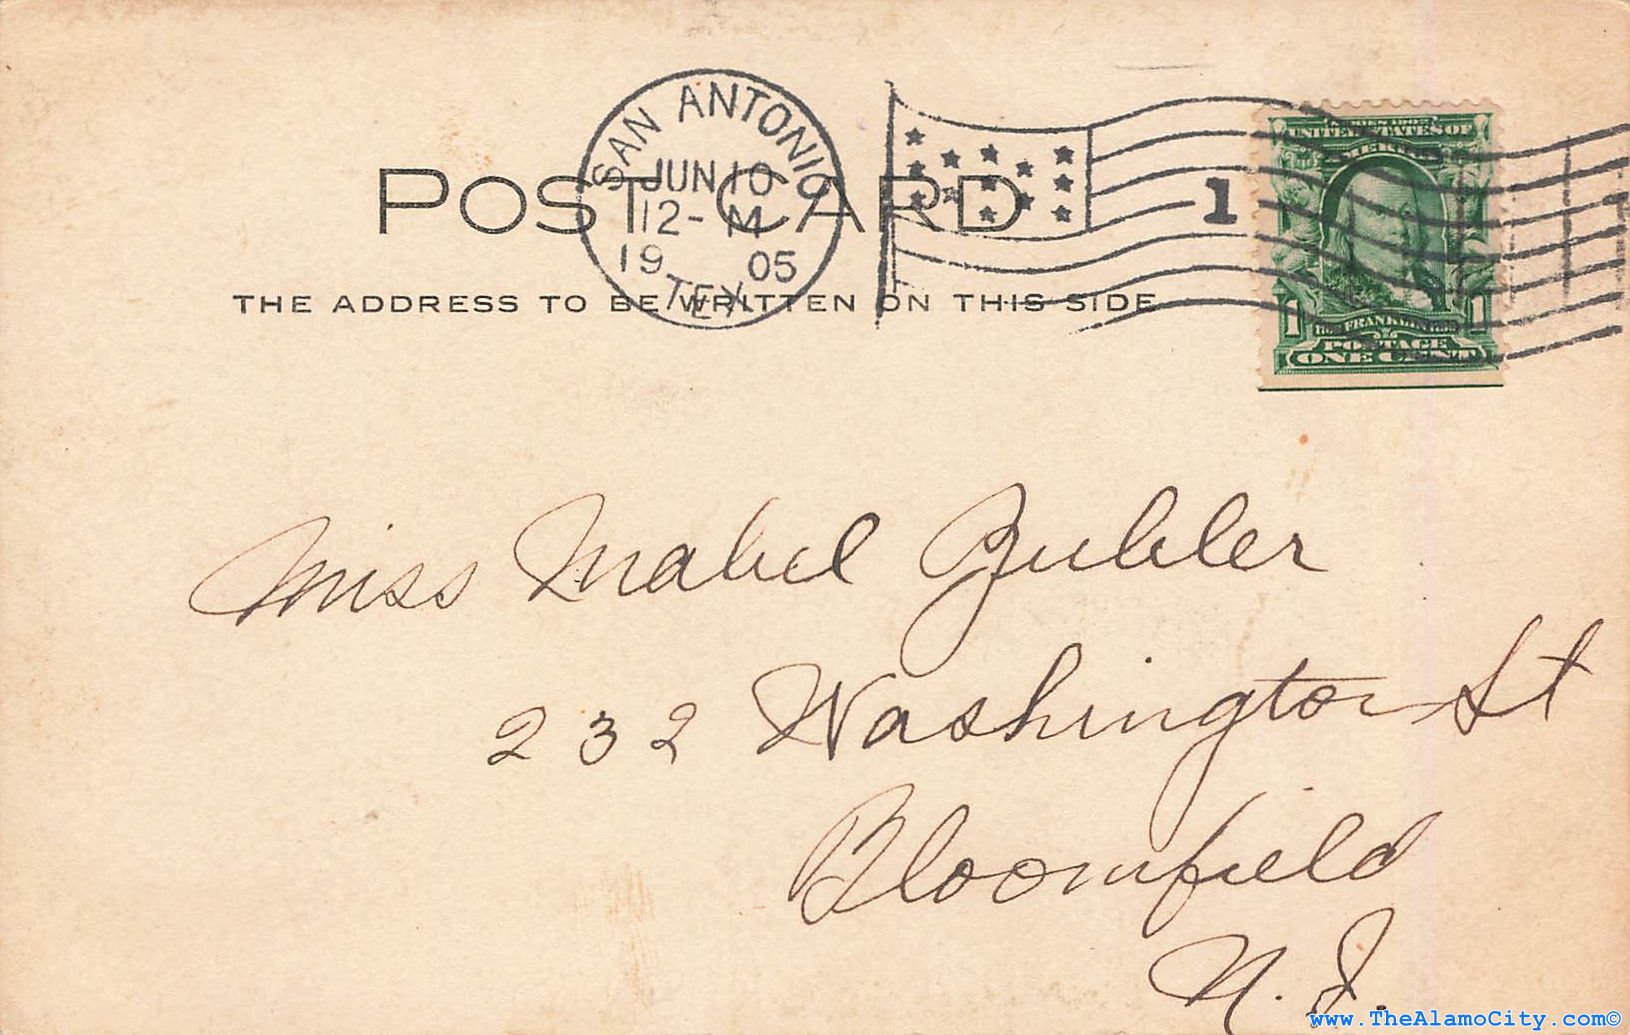 SAN ANTONIO
JUN 10
12-M
19 05
TEX.
1
POST CARD
THE ADDRESS TO BE WRITTEN ON THIS SIDE
SERIES 1902
UNITED STATES OF
AMERICA
1 FRANKLIN 1
POSTAGE
ONE CENT
Miss Mabel
232 Washington St
Bloomfield
N. J.
www.TheAlamoCity.com©